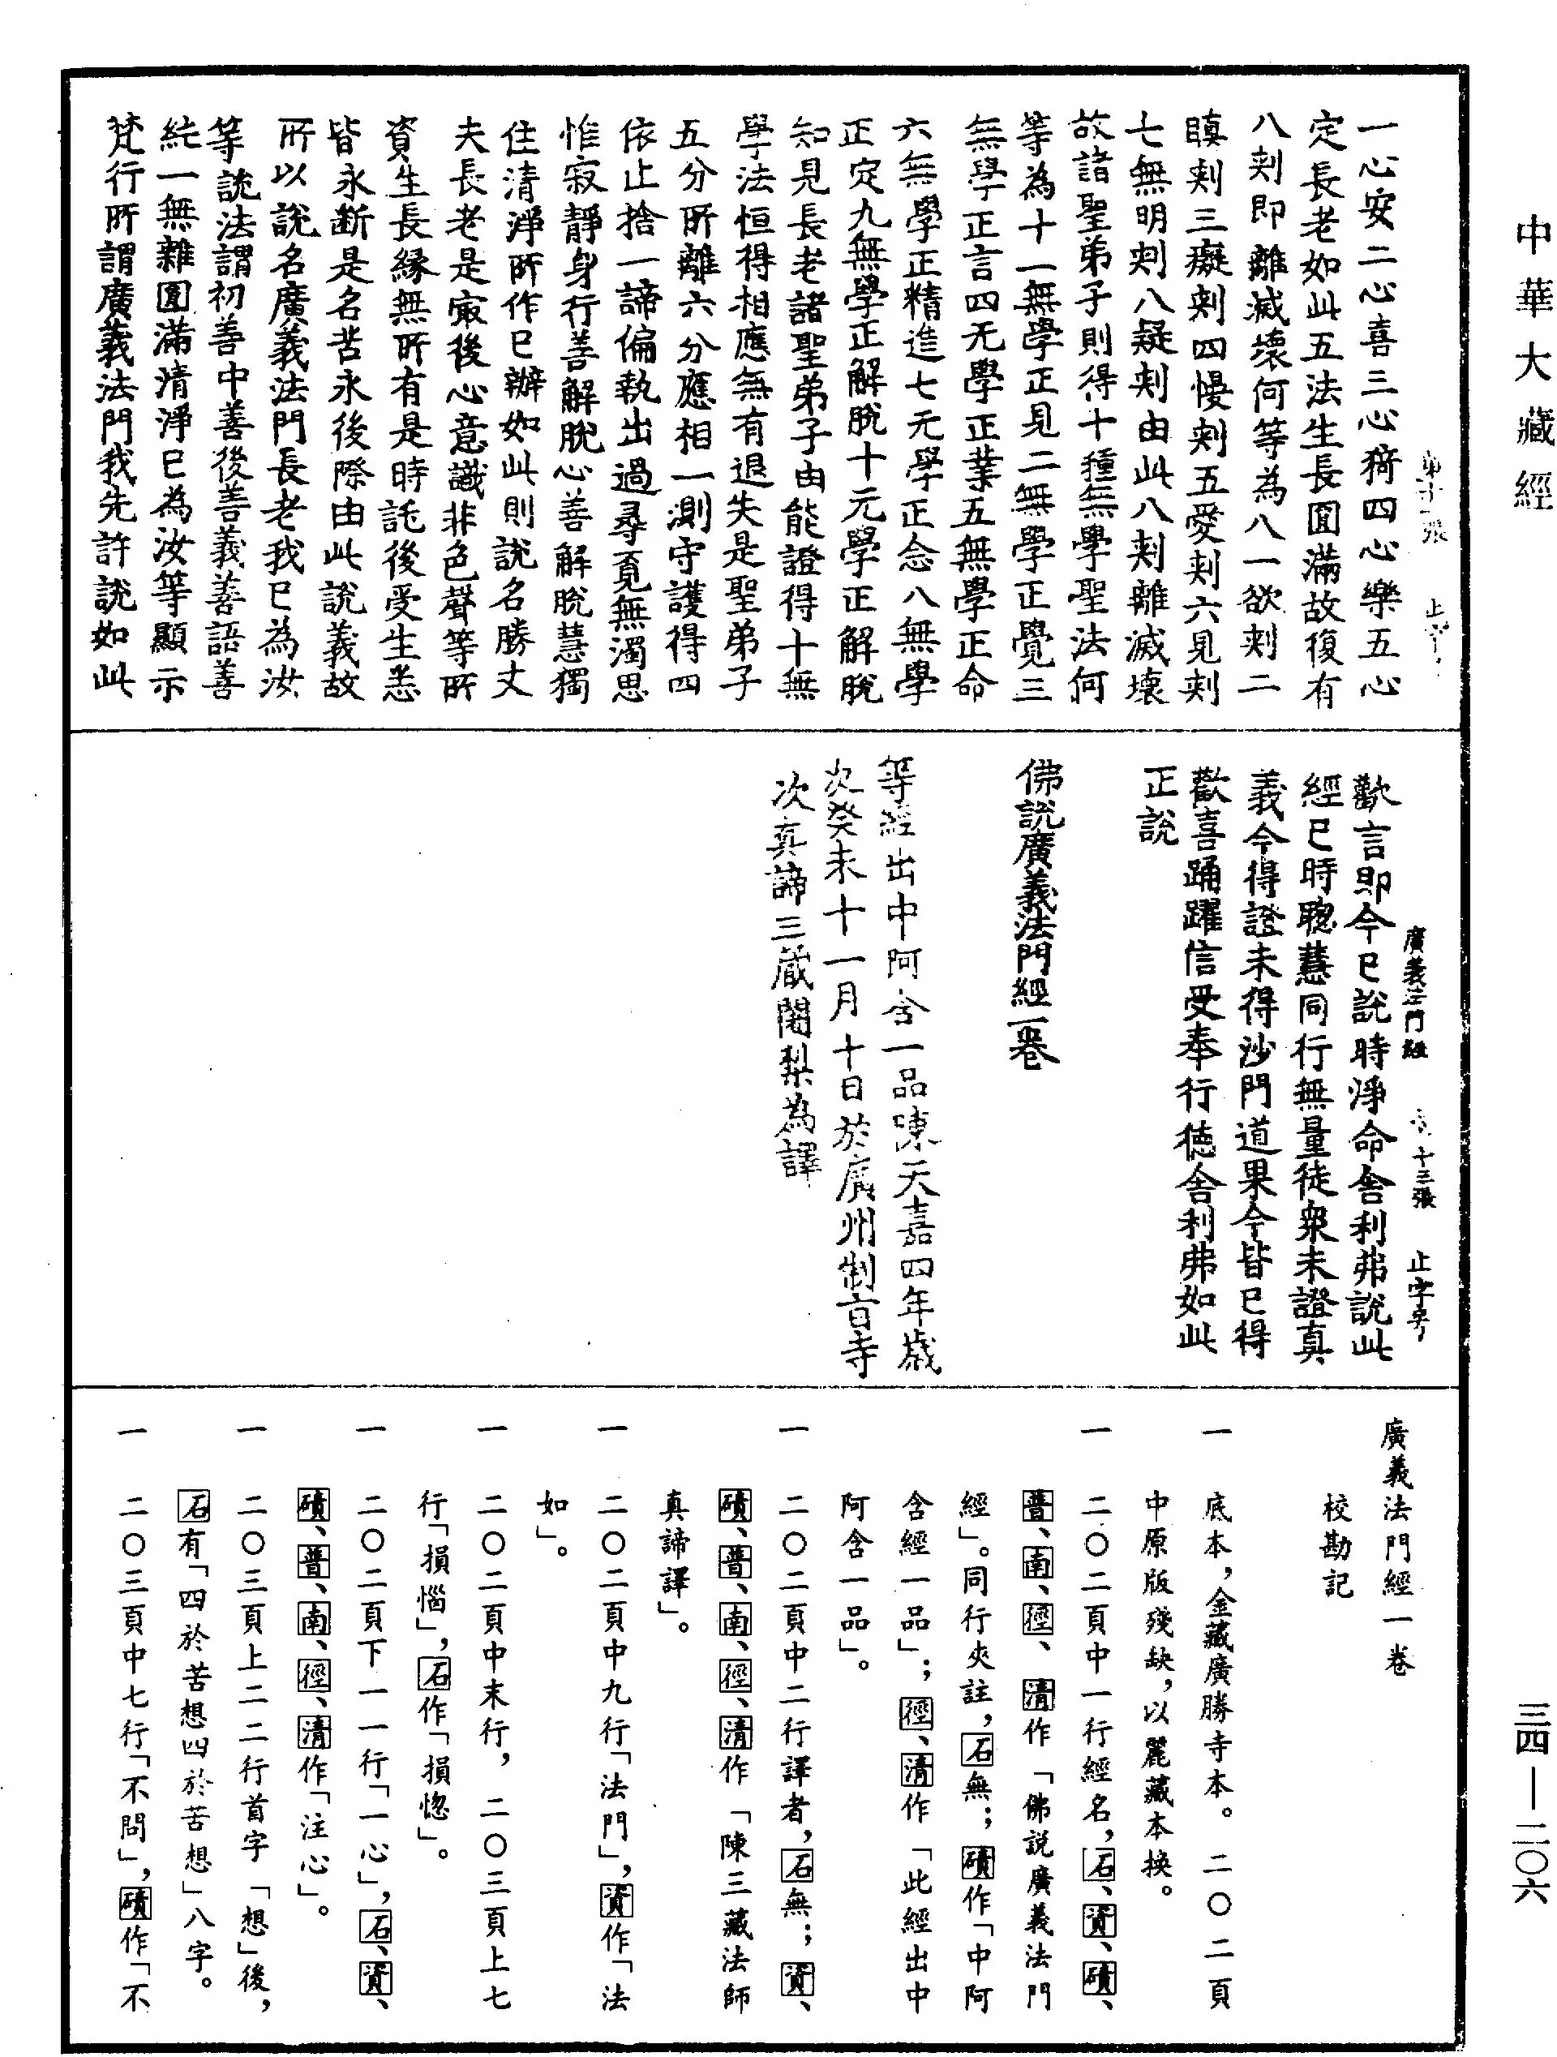 中華大藏經
一心安二心喜三心猗四心樂五心
定長老如此五法生長圓滿故復有
八刾即離滅壞何等為八一欲刾二
瞋刾三癡刾四慢刾五愛刾六見刾
七無明刾八疑刾由此八刾離滅壞
故諸聖弟子則得十種無學聖法何
等為十一無學正見二無學正覺三
無學正言四无學正業五無學正命
六無學正精進七无學正念八無學
正定九無學正解脫十元學正解脫
知見長老諸聖弟子由能證得十無
學法恒得相應無有退失是聖弟子
五分所離六分應相一測守護得四
依止捨一諦偏執出過尋覓無濁思
惟寂靜身行善解脫心善解脫慧獨
住清淨所作已辦如此則說名勝丈
夫長老是寂後心意識非色聲等所
資生長緣無所有是時託後受生悉
皆永断是名苦永後際由此說義故
所以說名廣義法門長老我已為汝
等說法謂初善中善後善義善語善
純一無雜圓滿清淨已為汝等顯示
梵行所謂廣義法門我先許說如此
廣義法門經 十三張 止字号
歡言即今已說時淨命舍利弗說此
經已時聰慧同行無量徒衆未證真
義今得證未得沙門道果今皆已得
歡喜踊躍信受奉行德舍利弗如此
正說
佛說廣義法門經一卷
等經出中阿含一品陳天嘉四年歲
次癸未十一月十日於廣州制旨寺
次真諦三藏闍梨為譯
廣義法門經一卷
校勘記
一 底本，金藏廣勝寺本。二〇二頁
中原版殘缺，以麗藏本換。
一 二〇二頁中一行經名，石、資、磧、
普、南、徑、清作「佛說廣義法門
經」。同行夾註，石無；磧作「中阿
含經一品」；徑、清作「此經出中
阿含一品」。
一 二〇二頁中二行譯者，石無；資、
磧、普、南、徑、清作「陳三藏法師
真諦譯」。
一 二〇二頁中九行「法門」，資作「法
如」。
一 二〇二頁中末行，二〇三頁上七
行「損惱」，石作「損惚」。
一 二〇二頁下一一行「一心」，石、資、
磧、普、南、徑、清作「注心」。
一 二〇三頁上二二行首字「想」後，
石有「四於苦想四於苦想」八字。
一 二〇三頁中七行「不問」，磧作「不
三四—二〇六